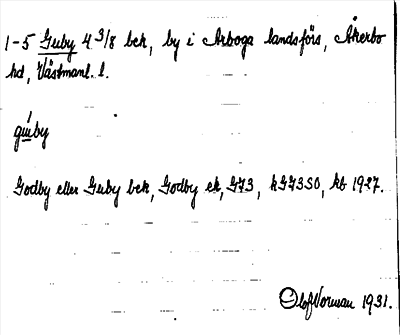 1-5 Guby 4 3/8 bek, by i Arboga landsförs, Åkerbo
hd, Västmanl. l.
gu̍by
Godby eller Guby bek, Godby ek, G73, kG73SO, kb 1927.
Olof Norman 1931.